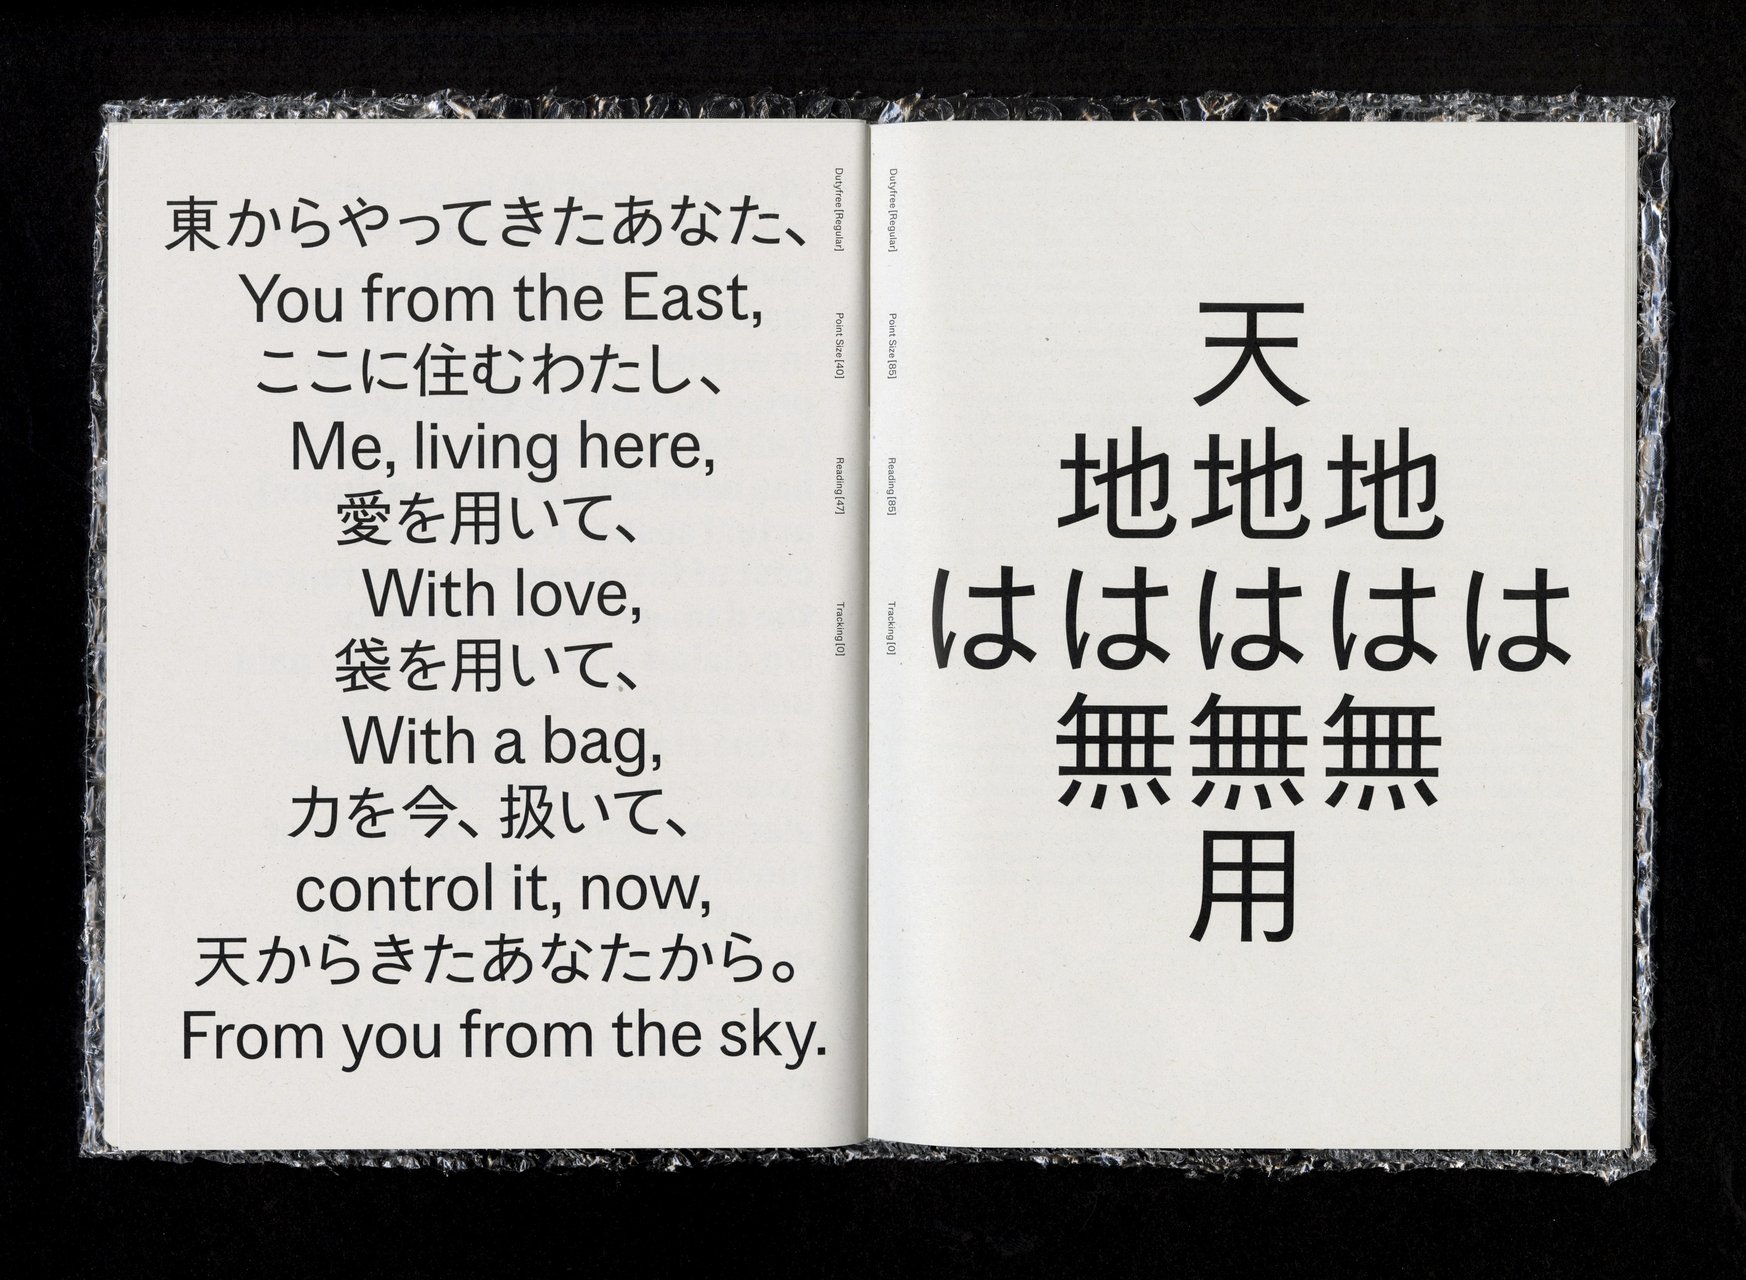 東からやってきたあなた、
You from the East,
ここに住むわたし、
Me, living here,
愛を用いて、
With love,
袋を用いて、
With a bag,
力を今、扱いて、
control it, now,
天からきたあなたから。
From you from the sky.
Dutyfree [Regular]
Point Size [40]
Reading [47]
Tracking [0]
Dutyfree [Regular]
Point Size [85]
Reading [85]
Tracking [0]
天
地地地
ははははは
無無無
用